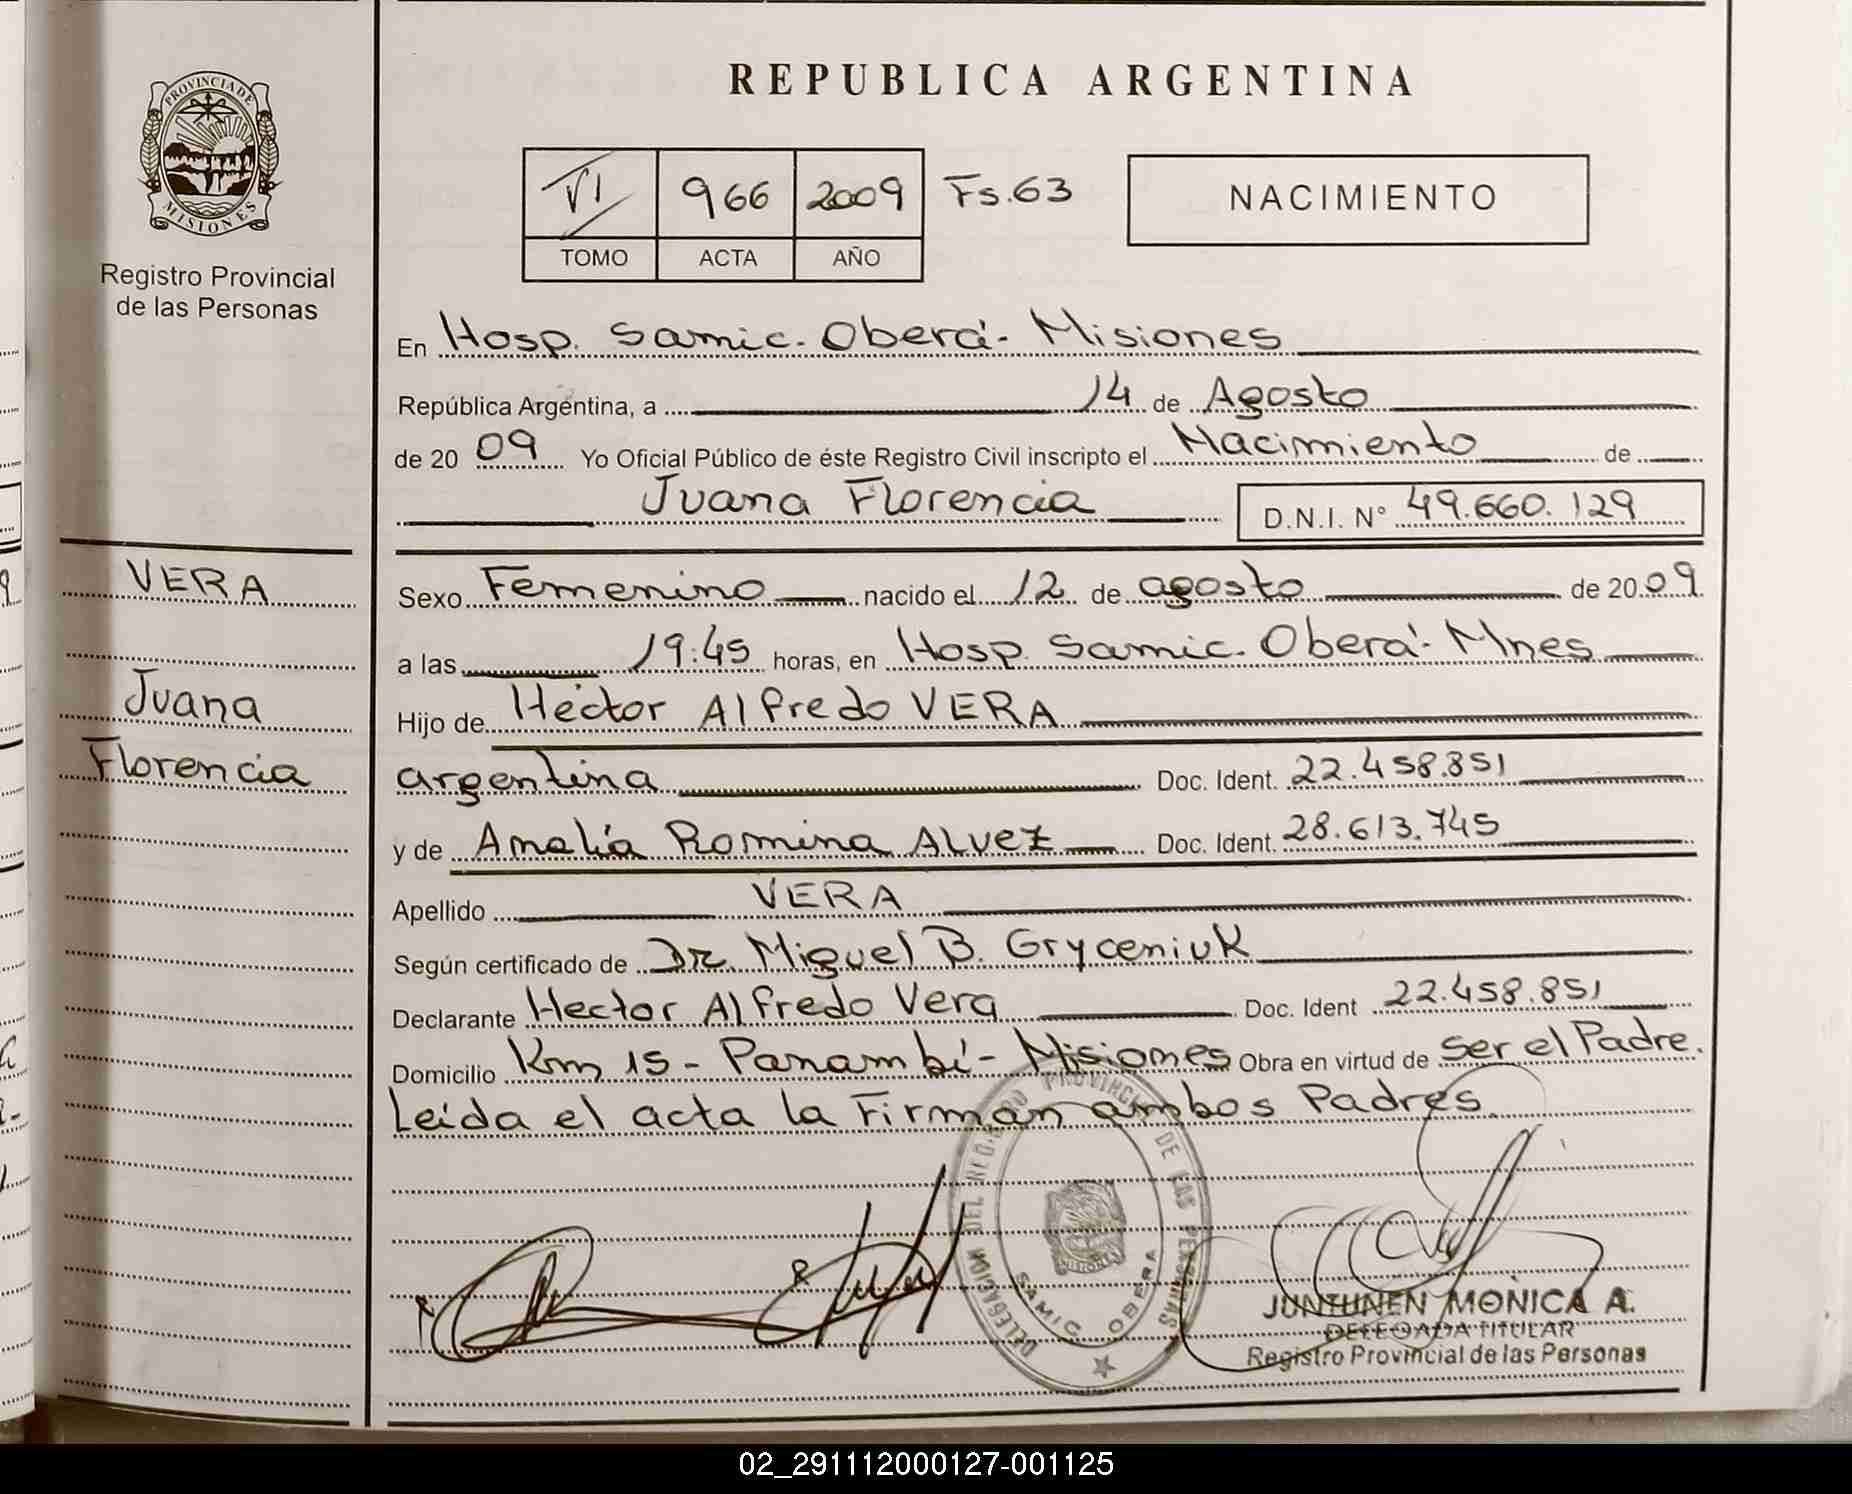 PROVINCIA DE
MISIONES
Registro Provincial
de las Personas
VERA
Juana
Florencia
REPUBLICA ARGENTINA
VI 966 2009 Fs.63
TOMO ACTA AÑO
NACIMIENTO
En Hosp. Samic. Oberá- Misiones
República Argentina, a 14 de Agosto
de 2009 Yo Oficial Público de éste Registro Civil inscripto el Nacimiento de
Juana Florencia D.N.I. N° 49.660.129
Sexo Femenino nacido el 12 de agosto de 2009
a las 19:45 horas, en Hosp. Samic. Oberá- Mnes
Hijo de Héctor Alfredo VERA
argentina Doc. Ident. 22.458.851
y de Amalia Romina ALVEZ Doc. Ident. 28.613.745
Apellido VERA
Según certificado de Dr. Miguel B. Gryceniuk
Declarante Hector Alfredo Vera Doc. Ident 22.458.851
Domicilio Km 15 - Panambí - Misiones Obra en virtud de ser el Padre.
Leída el acta la Firman ambos Padres.
DELEGACION DEL REGISTRO PROVINCIAL DE LAS PERSONAS
MISIONES
SAMIC OBERA
JUNTUNEN MONICA A.
DELEGADA TITULAR
Registro Provincial de las Personas
02_291112000127-001125